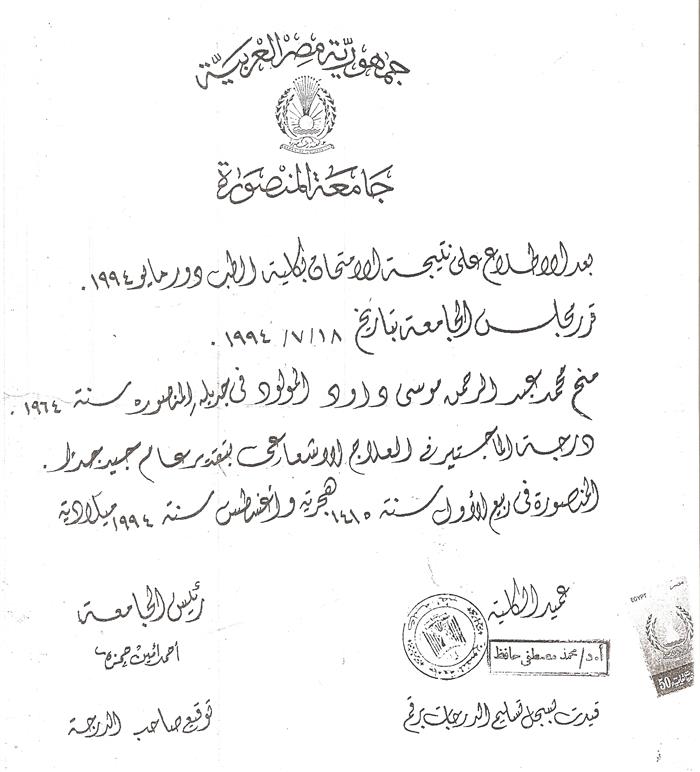 جمهورية مصر العربية
جامعة المنصورة
بعد الاطلاع على نتيجة الامتحان بكلية الطب دور مايو ١٩٩٤ .
قرر مجلس الجامعة بتاريخ ١٨ / ٧ / ١٩٩٤ .
منح محمد عبد الرحمن موسى داود المولود في جديله المنصوره سنة ١٩٦٤ .
درجة الماجستير في العلاج الاشعاعى بتقدير عام جيد جدا .
المنصورة في ربيع الأول سنة ١٤١٥ هجرية وأغسطس سنة ١٩٩٤ ميلادية
عميد الكلية
أ.د/ محمد مصطفى حافظ
رئيس الجامعة
أحمد امين حمزه
قيدت بسجل تسليم الدرجات برقم
توقيع صاحب الدرجة
EGYPT
50